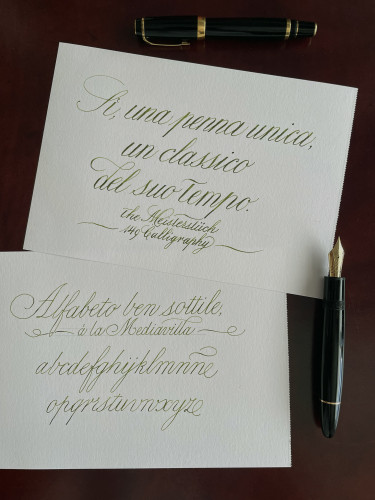 Sì, una penna unica,
un classico
del suo Tempo.
the Meisterstück
149 Calligraphy
Alfabeto ben sottile,
à la Mediavilla
abcdefghijklmnñe
opqrrstuvnxyze